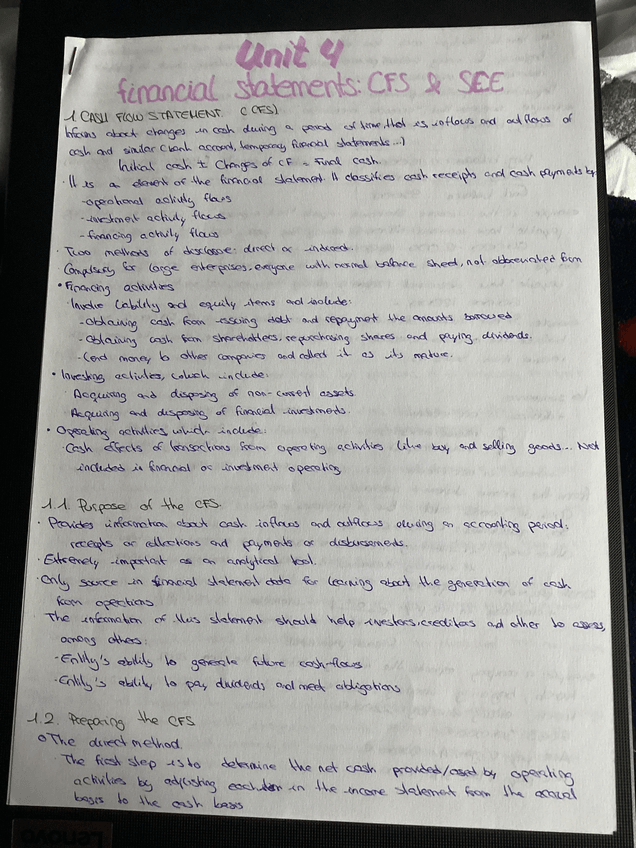 Unit 4
financial statements: CFS & SEE
1. CASH FLOW STATEMENT (CFS)
Informs about changes in cash during a period of time, that is inflows and outflows of
cash and similar (bank account, temporary financial statements...)
Initial cash ± Changes of CF = Final cash.
· It is an element of the financial statement. It classifies cash receipts and cash payments by
- operational activity flows
- investment activity flows
- financing activity flows
· Two methods of disclosure: direct or indirect.
Compulsory for large enterprises, everyone with normal balance sheet, not abbreviated form
• Financing activities
Involve liability and equity items and include:
- Obtaining cash from issuing debt and repayment the amounts borrowed
- Obtaining cash from shareholders, repurchasing shares and paying dividends.
- Lend money to other companies and collect it as its mature.
• Investing activities, which include:
Acquiring and disposing of non-current assets.
Acquiring and disposing of financial investments.
• Operating activities which include:
Cash effects of transactions from operating activities like buy and selling goods... Not
included in financial or investment operating
1.1. Purpose of the CFS.
· Provides information about cash inflows and outflows during an accounting period:
receipts or collections and payments or disbursements.
· Extremely important as an analytical tool.
· Only source in financial statement data for learning about the generation of cash
from operations
· The information of this statement should help investors, creditors and other to assess,
among others:
- Entity's ability to generate future cash-flows
- Entity's ability to pay dividends and meet obligations
1.2. Preparing the CFS
o The direct method.
· The first step is to determine the net cash provided/used by operating
activities by adjusting each item in the income statement from the accrual
basis to the cash basis
Lenovo